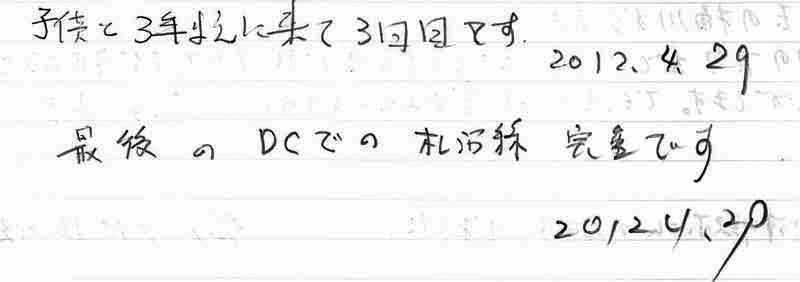 子供と3年まえに来て3回目です.
2012.4.29
最後のDCでの札沼線 完乗です
2012 4.29